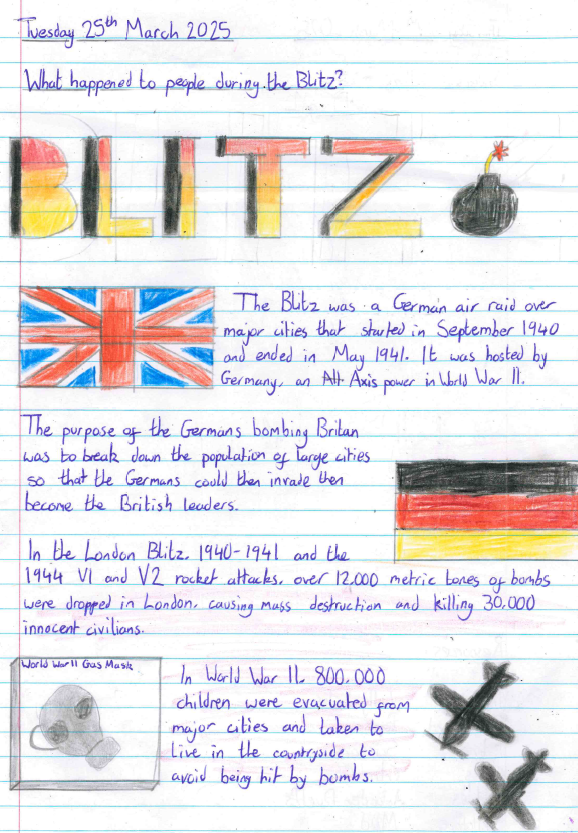 Tuesday 25th March 2025
What happened to people during the Blitz?
BLITZ
The Blitz was a German air raid over
major cities that started in September 1940
and ended in May 1941. It was hosted by
Germany, an Axis power in World War II.
The purpose of the Germans bombing Britan
was to break down the population of large cities
so that the Germans could then invade then
become the British leaders.
In the London Blitz, 1940-1941 and the
1944 V1 and V2 rocket attacks, over 12,000 metric tones of bombs
were dropped in London, causing mass destruction and killing 30,000
innocent civilians.
World War II Gas Mask
In World War II, 800,000
children were evacuated from
major cities and taken to
live in the countryside to
avoid being hit by bombs.